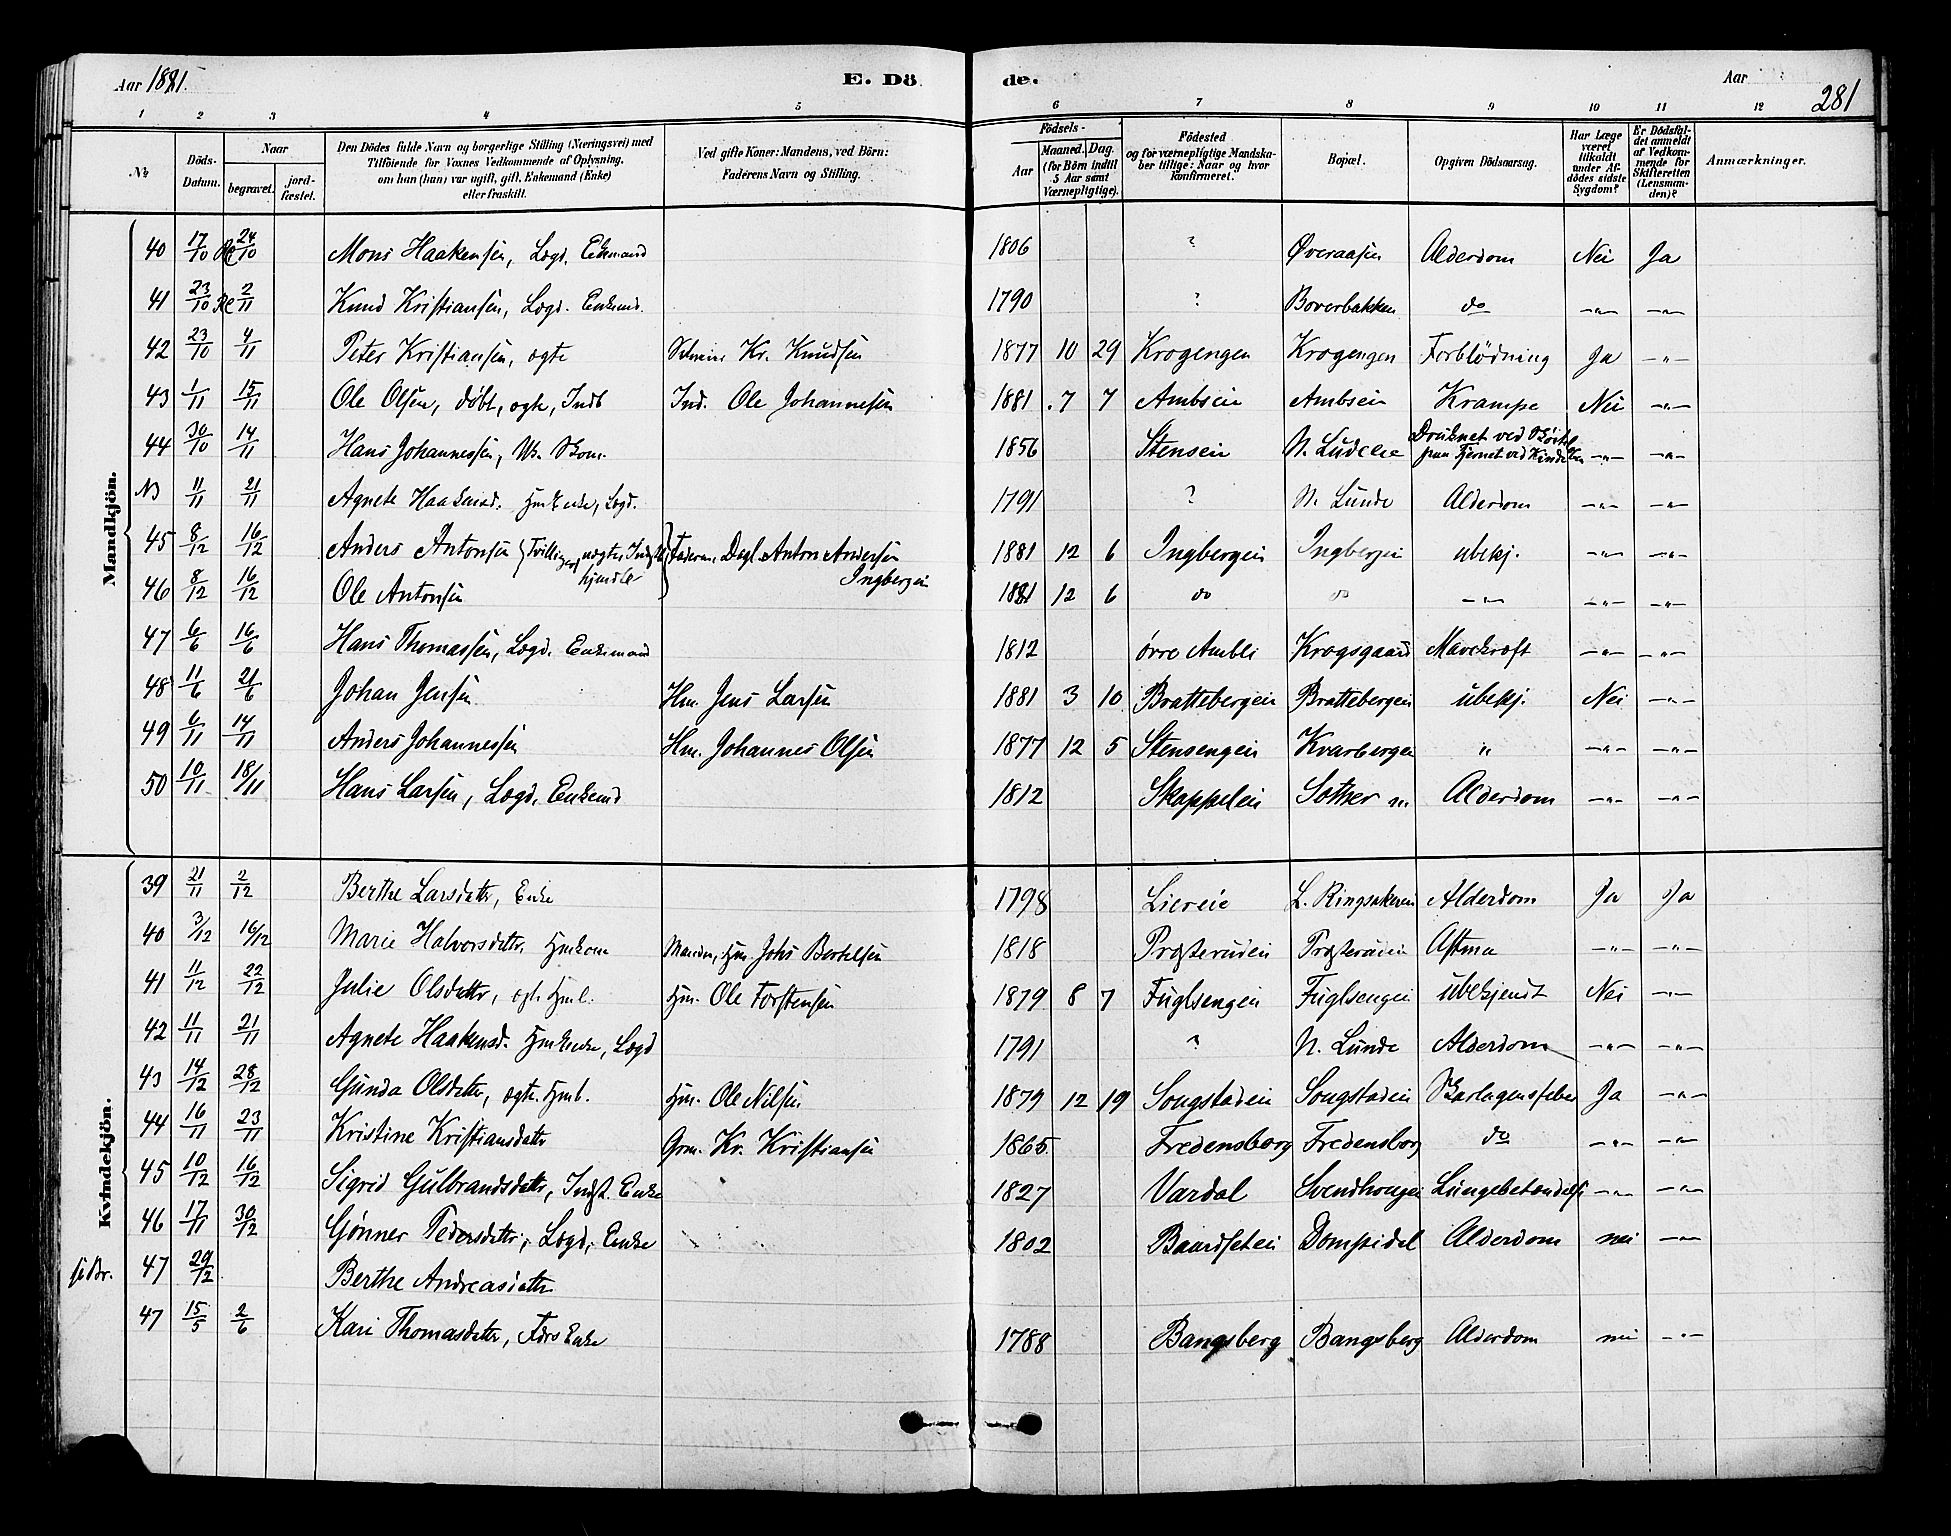 Aar 1881. E. Dö de. Aar 281
1 2 3 4 5 6 7 8 9 10 11 12
No Döds-Datum. Naar begravet. jordfæstet. Den Dödes fulde Navn og borgerlige Stilling (Næringsvei) med Tilföiende for Voxnes Vedkommende af Oplysning, om han (hun) var ugift, gift, Enkemand (Enke) eller fraskilt. Ved gifte Koner: Mandens, ved Börn: Faderens Navn og Stilling. Födsels- Aar Maaned. Dag. (for Börn indtil 5 Aar samt Værnepligtige). Födested og for værnepligtige Mandskaber tillige: Naar og hvor konfirmeret. Bopæl. Opgiven Dödsaarsag. Har Læge været tilkaldt under Afdödes sidste Sygdom? Er Dödsfaldet anmeldt af Vedkommende for Skifteretten (Lensmanden)? Anmærkninger.
Mandkjön.
40 17/10 24/10 Mons Haakensen, Lægd. Enkemand 1806 ? Øveraasen Alderdom Nei Ja
41 23/10 2/11 Knud Kristiansen, Lægd. Enkemd. 1790 ? Boverbakken do -"- -"-
42 23/10 4/11 Peter Kristiansen, ægte Kr. Knudsen 1877 10 29 Krogengen Krogengen Forblödning Ja -"-
43 1/11 15/11 Ole Olsen, døbt, ægte, Inds Ind. Ole Johannesen 1881 7 7 Ambsein Ambsein Krampe Nei -"-
44 30/10 14/11 Hans Johannessen, Uk. Skom. 1856 Stensein N. Druknet ved Tjernet ved -"- -"-
NB 11/11 21/11 Agnete Haakensd. HmEnke, Lægd. 1791 ? N. Lunde Alderdom -"- -"-
45 8/12 16/12 Anders Antonsen Tvillinger, uægte, Faderen, Dagl. Anton Andersen 1881 12 6 Ingbergein Ingbergein ubekj. -"- -"-
46 8/12 16/12 Ole Antonsen Ingbergein 1881 12 6 do do -"- -"- -"-
47 6/6 16/6 Hans Thomassen, Lægd. Enkemand 1812 øvre Ambli Krogsgaard Mavekræft -"- -"-
48 11/6 21/6 Johan Jensen Hm. Jens Larsen 1881 3 10 Brattebergein Brattebergein ubekj. Nei -"-
49 6/11 14/11 Anders Johannessen Hm. Johannes Olsen 1877 12 5 Stensengein Kvarbergein " -"- -"-
50 10/11 18/11 Hans Larsen, Lægd. Enkemd 1812 Skappelein Alderdom -"- -"-
Kvindekjön.
39 21/11 2/12 Berthe Larsdatter, Enke 1798 Liereie L. Ringsakeren Alderdom Ja Ja
40 3/12 16/12 Marie Halvorsdatter, Hmkone Manden, Hm. Johs Bertelsen 1818 Prosterudein Prosterudein Astma -"- -"-
41 11/12 22/12 Julie Olsdatter, ægte Hmb. Hm. Ole Torstensen 1879 8 7 Fuglsengein Fuglsengein ubekjendt Nei -"-
42 11/11 21/11 Agnete Haakensd. HmEnke, Lægd 1791 ? N. Lunde Alderdom -"- -"-
43 14/12 28/12 Gunda Olsdatter, ægte Hmb. Hm. Ole Nilsen 1879 12 19 Songstadein Songstadein Skarlagensfeber Ja -"-
44 16/11 23/11 Kristine Kristiansdatter Grm. Kr. Kristiansen 1865 Fredensborg Fredensborg do -"- -"-
45 10/12 16/12 Sigrid Gulbrandsdatter, Indst. Enke 1827 Vardal Svendhougen Lungebetændelse -"- -"-
46 17/11 30/12 Gönner Pedersdatter, Lægd. Enke 1802 Baardsetein Dompidal Alderdom nei -"-
47 29/12 Berthe Andreasdatter
47 15/5 2/6 Kari Thomasdatter, Enke 1788 Bangsberg Bangsberg Alderdom nei -"-